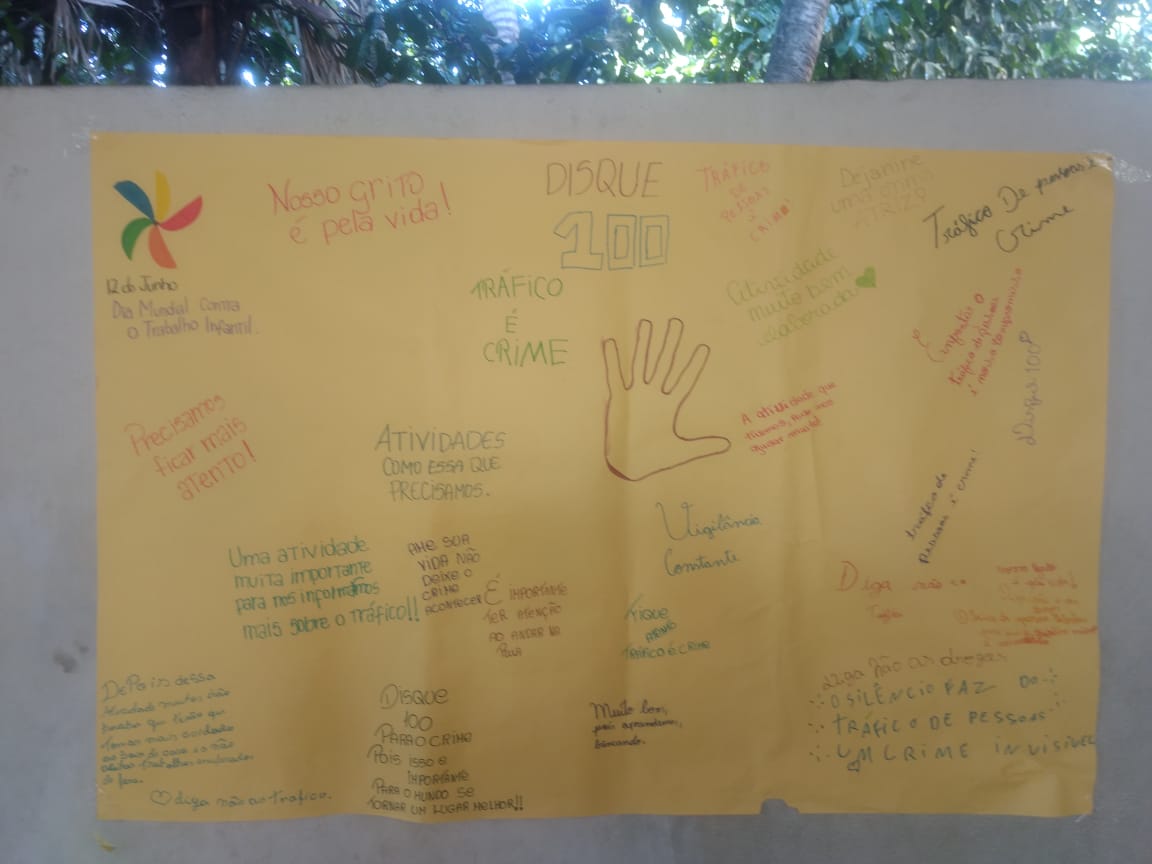 12 de Junho
Dia Mundial Contra
o Trabalho Infantil.
Nosso GRITO
é pela vida!
DISQUE
100
TRÁFICO
DE
PESSOAS
É
CRIME!
Dejanine
uma
Tráfico De pessoas é
Crime
TRÁFICO
É
CRIME
Atividade
muito bem
elaborada
Enfrentar o
tráfico de pessoas
é nosso compromisso
Disque 100
Precisamos
ficar mais
atento!
ATIVIDADES
COMO ESSA QUE
PRECISAMOS.
A atividade que
tivemos, pode nos
ajudar muito!
tráfico de
Pessoas é crime!
Vigilância
Constante
Uma atividade
muita importante
para nos informarmos
mais sobre o Tráfico!!
AME SUA
VIDA NÃO
DEIXE O
CRIME
ACONTECER
É IMPORTANTE
TER ATENÇÃO
AO ANDAR NA
RUA
FIQUE
ATENTO
TRÁFICO É CRIME
Diga não ao
Diga não as drogas
O SILÊNCIO FAZ DO
TRÁFICO DE PESSOAS
UM CRIME INVISÍVEL
DePois dessa
atividade muitos irão
perceber que terão que
tomar mais cuidado
ao sair de casa e não
de fora.
diga não ao trafico.
DISQUE
100
PARA O CRIME
POIS ISSO É
IMPORTANTE
PARA O MUNDO SE
TORNAR UM LUGAR MELHOR!!
Muito bom,
pois aprendemos,
brincando.